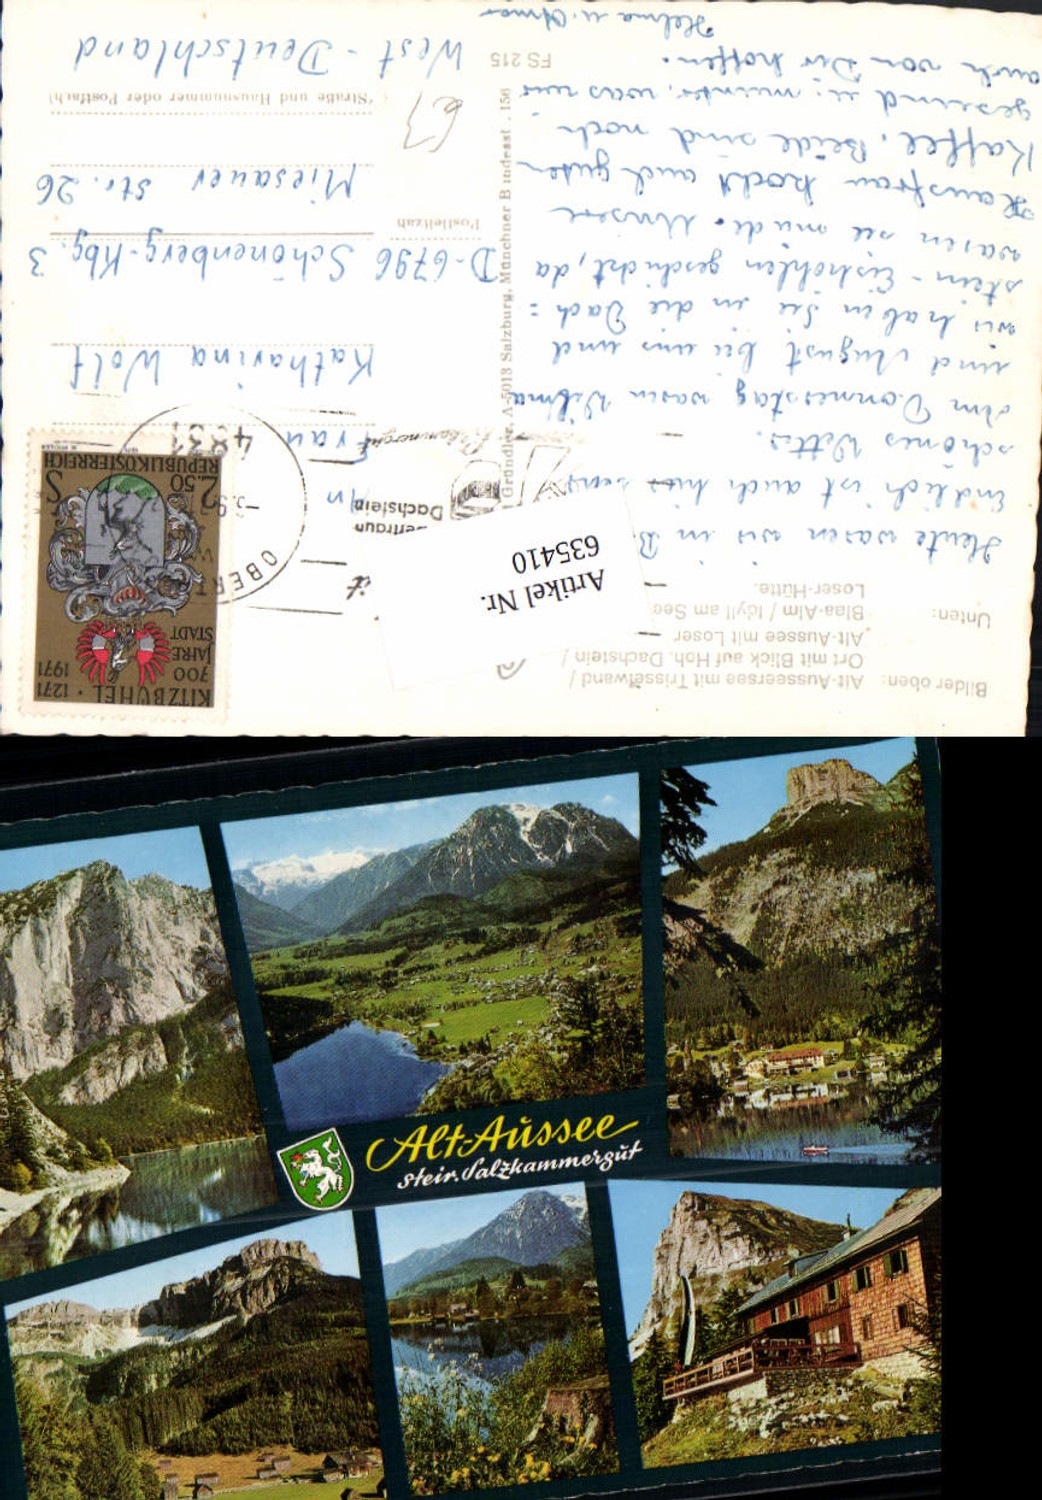 Bilder oben: Alt-Ausseersee mit Trisselwand /
Ort mit Blick auf Hoh. Dachstein /
Alt-Aussee mit Loser
Unten: Blaa-Alm / Idyll am See
Loser-Hütte.
Heute waren wir in B.
Endlich ist auch hier
schönes Wetter.
Am Donnerstag waren Wilma
und August bei uns und
wir haben sie in die Dach=
stein-Eishöhlen geschickt, da
waren sie müde. Unsere
Hausfrau kocht auch guten
Kaffee. Beide sind noch
gesund u. munter, was wir
auch von Dir hoffen.
Helma u. Otmar
Artikel Nr.
635410
KITZBÜHEL · 1271
700 1971
JAHRE
STADT
2.50 S
REPUBLIK ÖSTERREICH
OBERT
4831
Obertraun
Dachstein
Salzkammergut
An
Frau
Katharina Wolf
D-6796 Schönenberg-Kbg. 3
Postleitzahl
Miesauer Str. 26
(Straße und Hausnummer oder Postfach)
West-Deutschland
67
Gründler, A-5013 Salzburg, Münchner Bundesst. 156
FS 215
Alt-Aussee
Steir. Salzkammergut